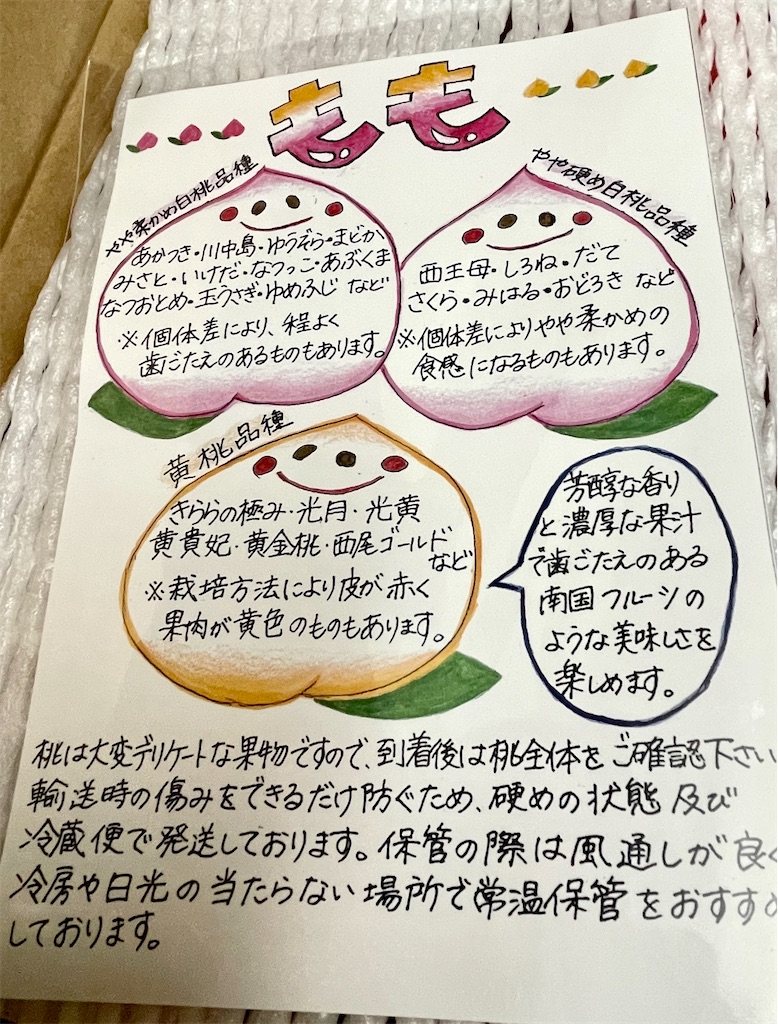 もも
やや柔かめ白桃品種
あかつき・川中島・ゆうぞら・まどか
みさと・いけだ・なつっこ・あぶくま
なつおとめ・玉うさぎ・ゆめふじ など
※個体差により、程よく
歯ごたえのあるものもあります。
やや硬め白桃品種
西王母・しろね・だて
さくら・みはる・おどろき など
※個体差によりやや柔かめの
食感になるものもあります。
黄桃品種
きららの極み・光月・光黄
黄貴妃・黄金桃・西尾ゴールド
など
※栽培方法により皮が赤く
果肉が黄色のものもあります。
芳醇な香り
と濃厚な果汁
で歯ごたえのある
南国フルーツの
ような美味しさを
楽しめます。
桃は大変デリケートな果物ですので、到着後は桃全体をご確認下さい
輸送時の傷みをできるだけ防ぐため、硬めの状態及び
冷蔵便で発送しております。保管の際は風通しが良く
冷房や日光の当たらない場所で常温保管をおすすめ
しております。